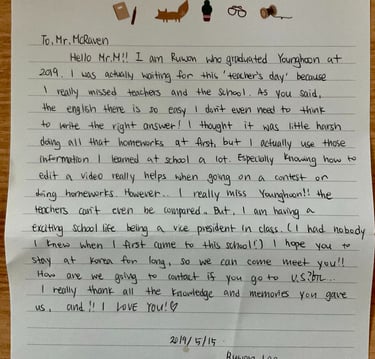 To. Mr. McRaven
Hello Mr.M!! I am Ruwon who graduated Younghoon at
2019. I was actually waiting for this 'teacher's day' because
I really missed teachers and the school. As you said,
the english there is so easy I don't even need to think
to write the right answer! I thought it was little harsh
doing all that homeworks at first, but I actually use those
information I learned at school a lot. Especially knowing how to
edit a video really helps when going on a contest or
doing homeworks. However.. I really miss Younghoon!! the
teachers can't even be compared. But, I am having a
exciting school life being a vice president in class. (I had nobody
I knew when I first came to this school!) I hope you to
stay at Korea for long, so we can come meet you!!
How are we going to contact if you go to U.S?
I really thank all the knowledge and memories you gave
us, and!! I LOVE YOU!♡
2019/5/15
Ruwon Lee